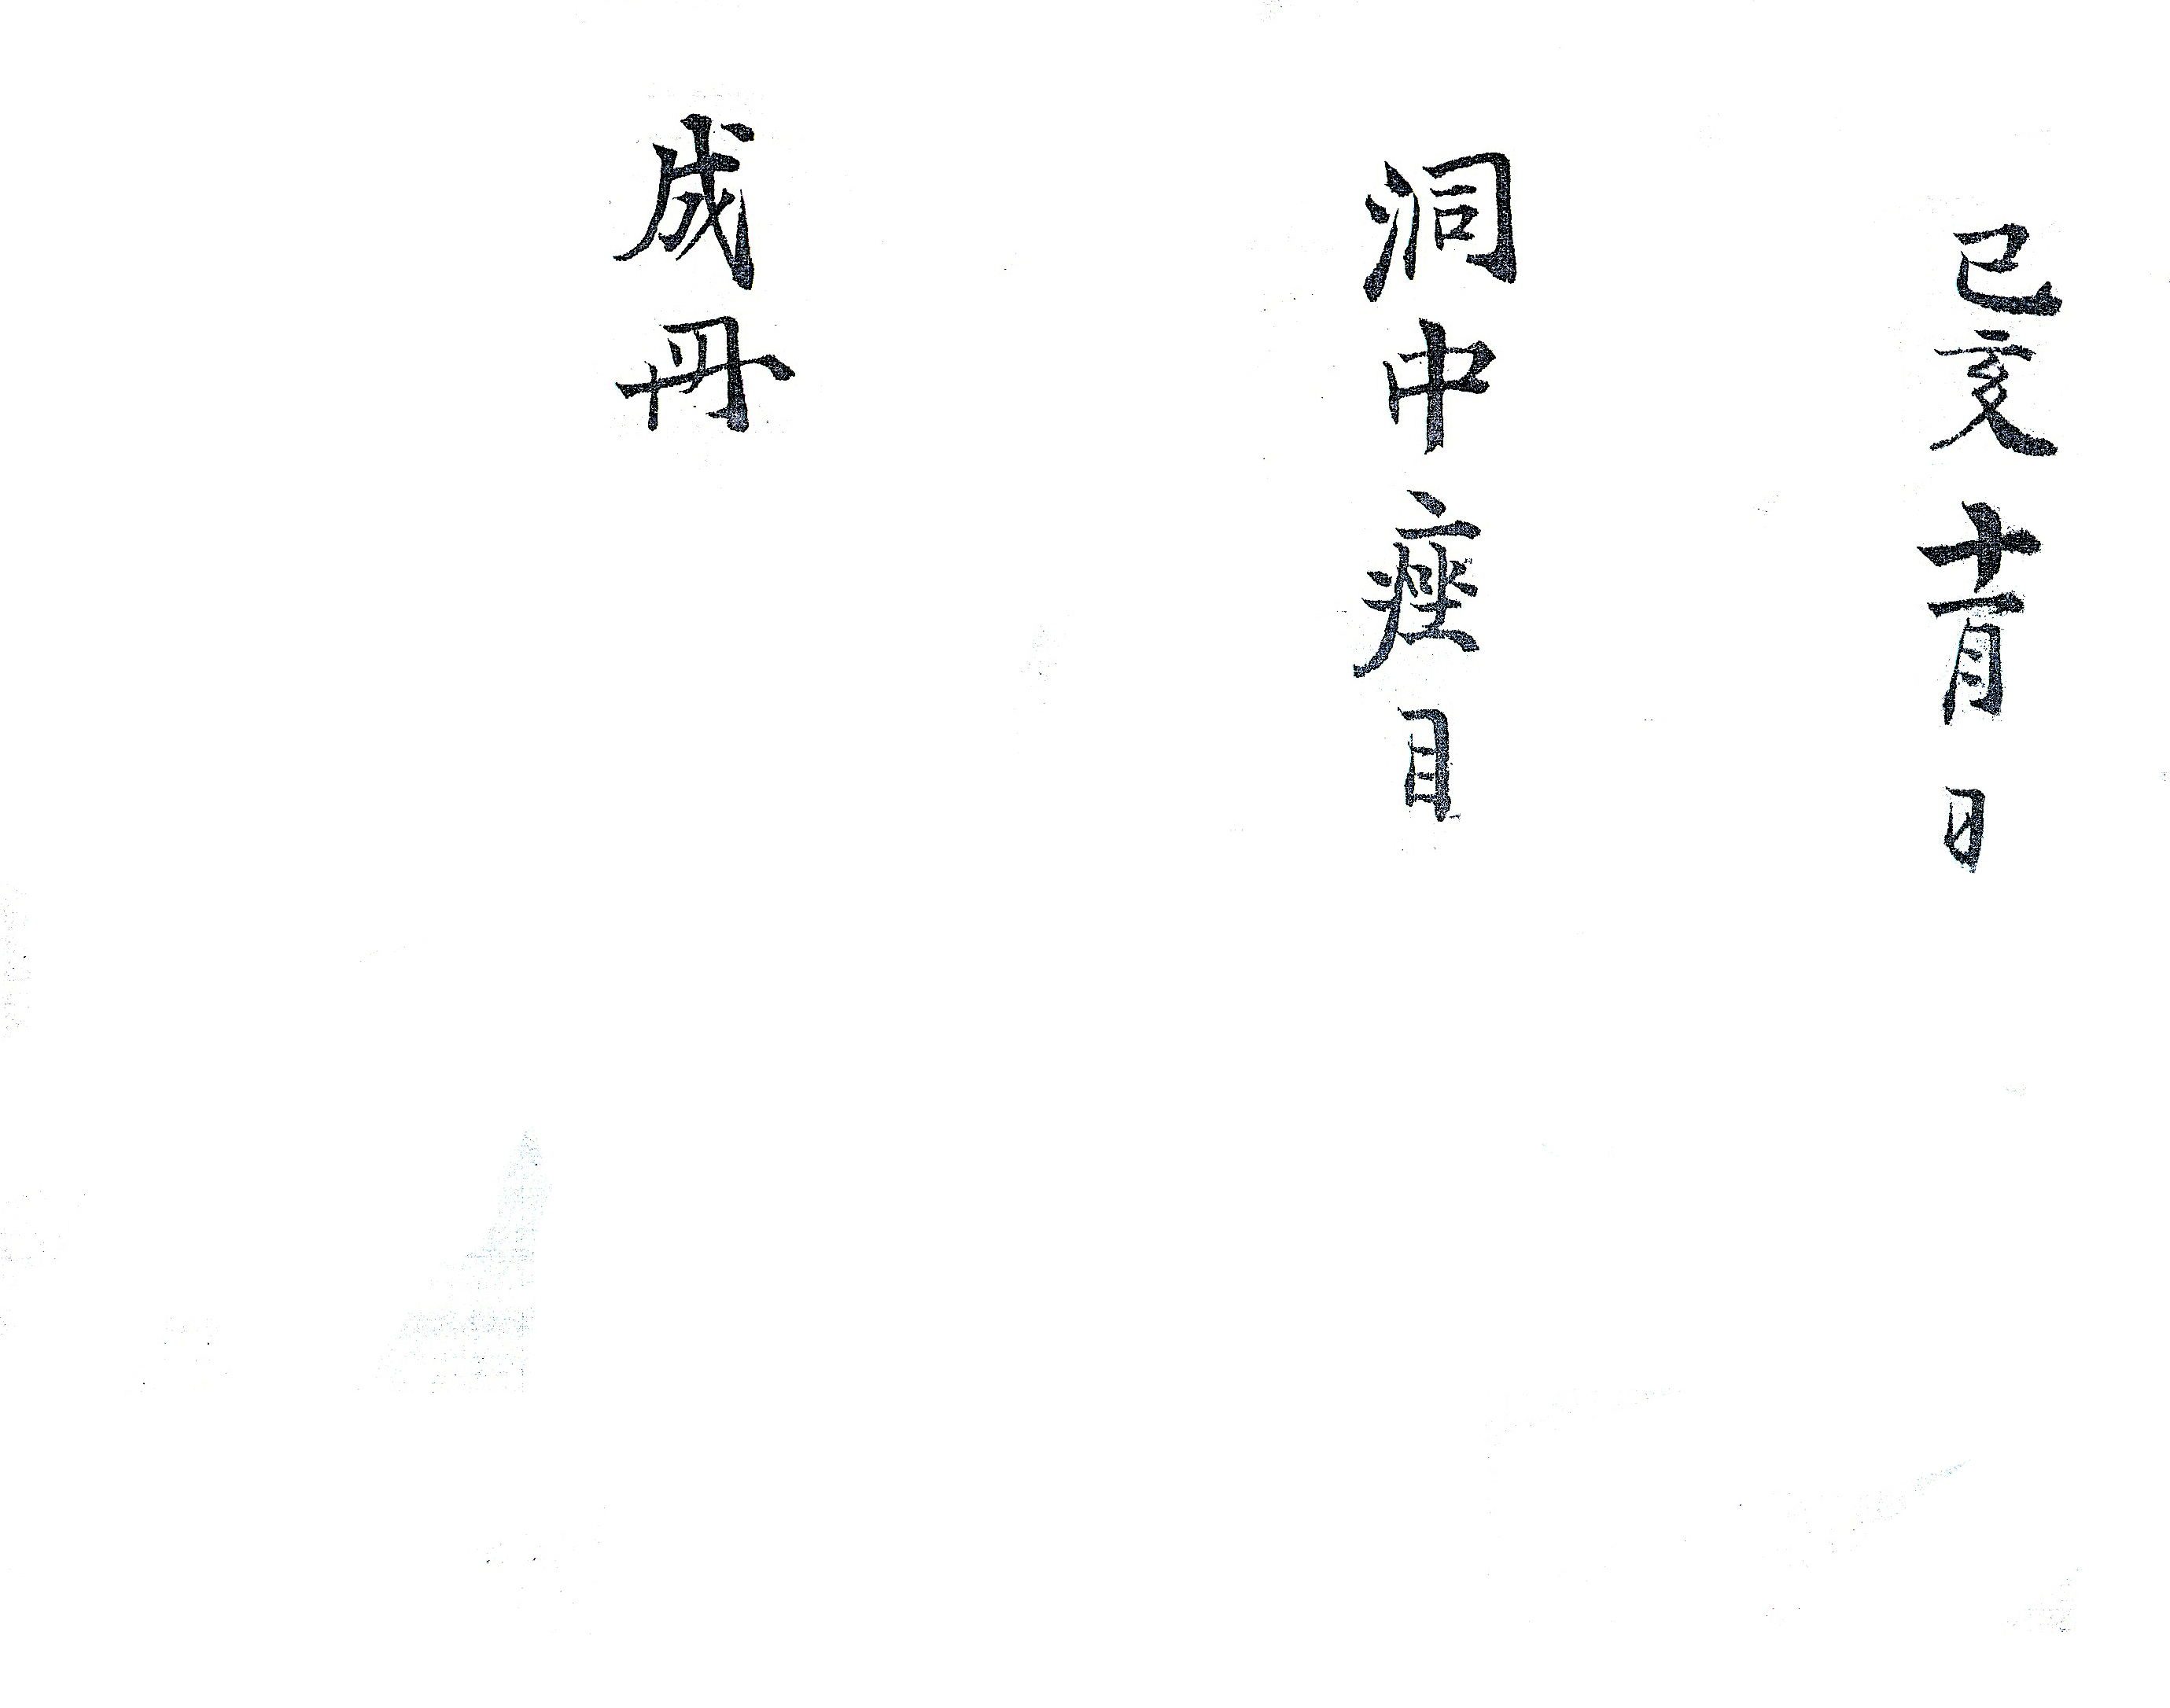 己亥十一月 日
洞中座目
成冊